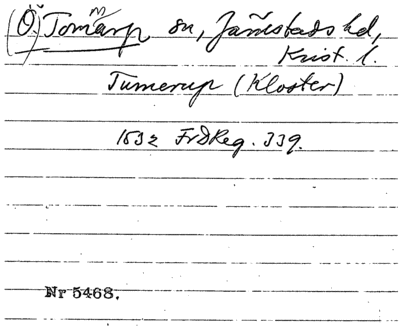 (Ö.) Tommarp sn, Järrestads hd,
Krist. l.
Tumerup (Kloster)
1532 FrdReg. 339.
Nr 5468.